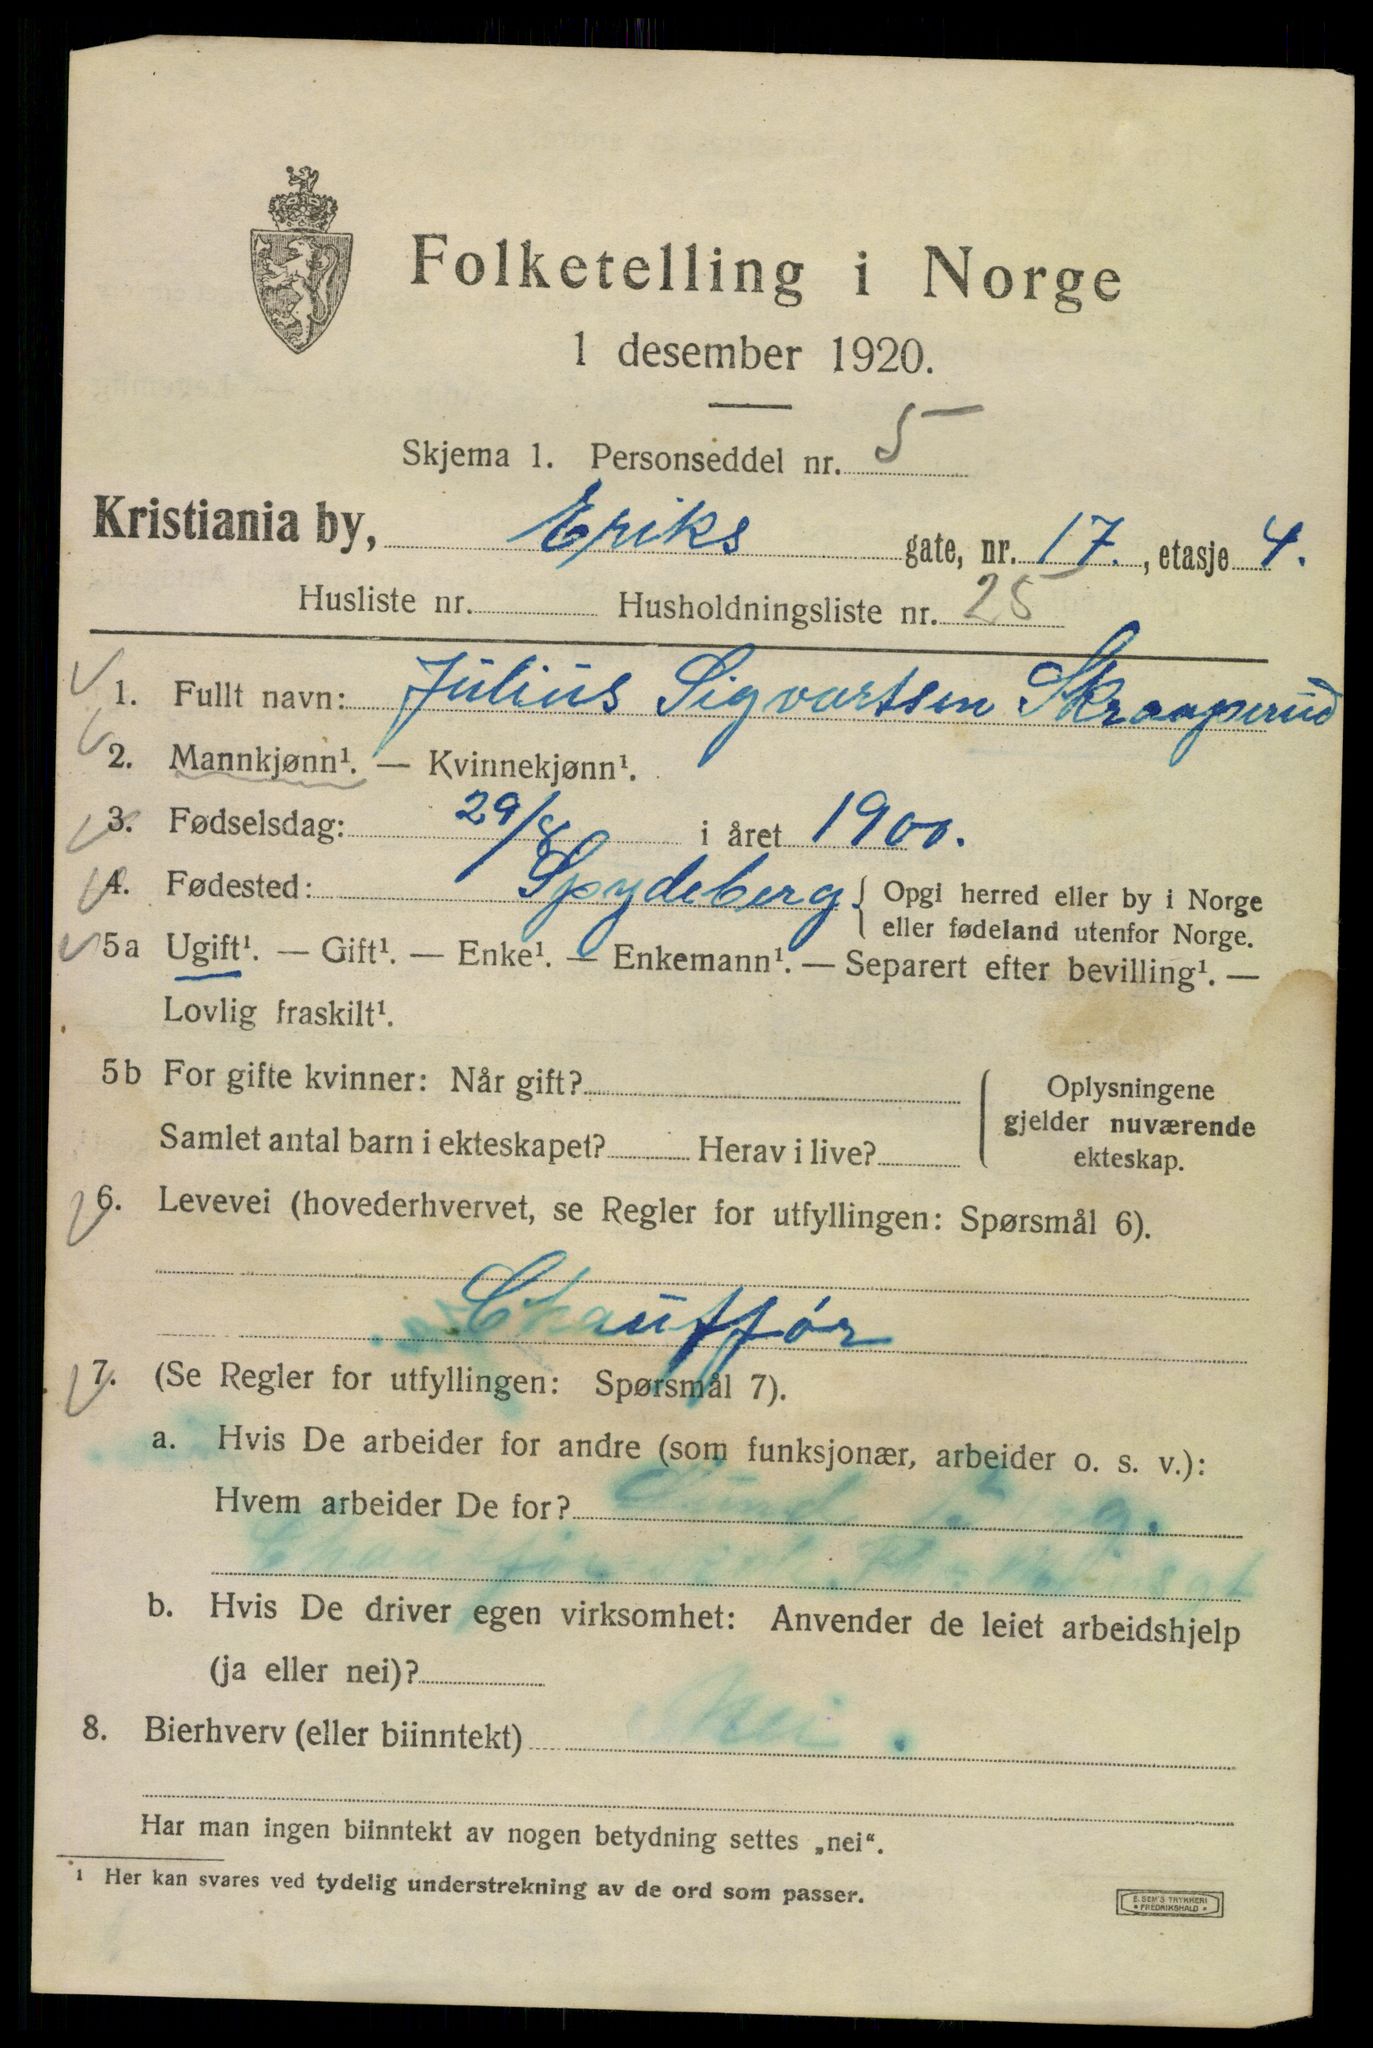 Folketelling i Norge
1 desember 1920.
Skjema 1. Personseddel nr. 5
Kristiania by, Eriks gate, nr. 17., etasje 4.
Husliste nr. Husholdningsliste nr. 25
1. Fullt navn: Julius Sigvartsen Skraaperud
2. Mannkjønn¹. — Kvinnekjønn¹.
3. Fødselsdag: 29/8 i året 1900.
4. Fødested: Spydeberg { Opgi herred eller by i Norge
eller fødeland utenfor Norge.
5a Ugift¹. — Gift¹. — Enke¹. — Enkemann¹. — Separert efter bevilling¹. —
Lovlig fraskilt¹.
5b For gifte kvinner: Når gift?
Samlet antal barn i ekteskapet? Herav i live?
Oplysningene
gjelder nuværende
ekteskap.
6. Levevei (hovederhvervet, se Regler for utfyllingen: Spørsmål 6).
Chauffør
7. (Se Regler for utfyllingen: Spørsmål 7).
a. Hvis De arbeider for andre (som funksjonær, arbeider o. s. v.):
Hvem arbeider De for? Lund
b. Hvis De driver egen virksomhet: Anvender de leiet arbeidshjelp
(ja eller nei)?
8. Bierhverv (eller biinntekt) Nei.
Har man ingen biinntekt av nogen betydning settes „nei“.
¹ Her kan svares ved tydelig understrekning av de ord som passer.
E. SEM'S TRYKKERI
• FREDRIKSHALD •